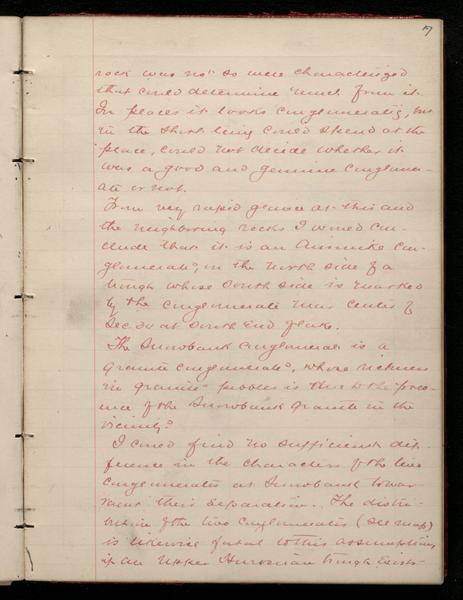 7
rock was not so well characterized
that I could determine much from it.
In places it looks conglomeratic, but
in the short time I could spend at the
place, could not decide whether it
was a good and genuine conglomer-
ate or not.
From very rapid glance at this and
the neighboring rocks I would con-
clude that it is an Animike con-
glomerate, on the north side of a
trough whose south side is marked
by the conglomerate near center of
Sec 30 at south end of lake.
The Snowbank conglomerate is a
granite conglomerate, whose richness
in granite pebbles is due to the pres-
ence of the Snowbank granite in the
vicinity.
I could find no sufficient dif-
ference in the character of the two
conglomerates at Snowbank to war-
rant their separation. The distri-
bution of the two conglomerates (see map)
is likewise fatal to this assumption,
if an Upper Huronian trough exists